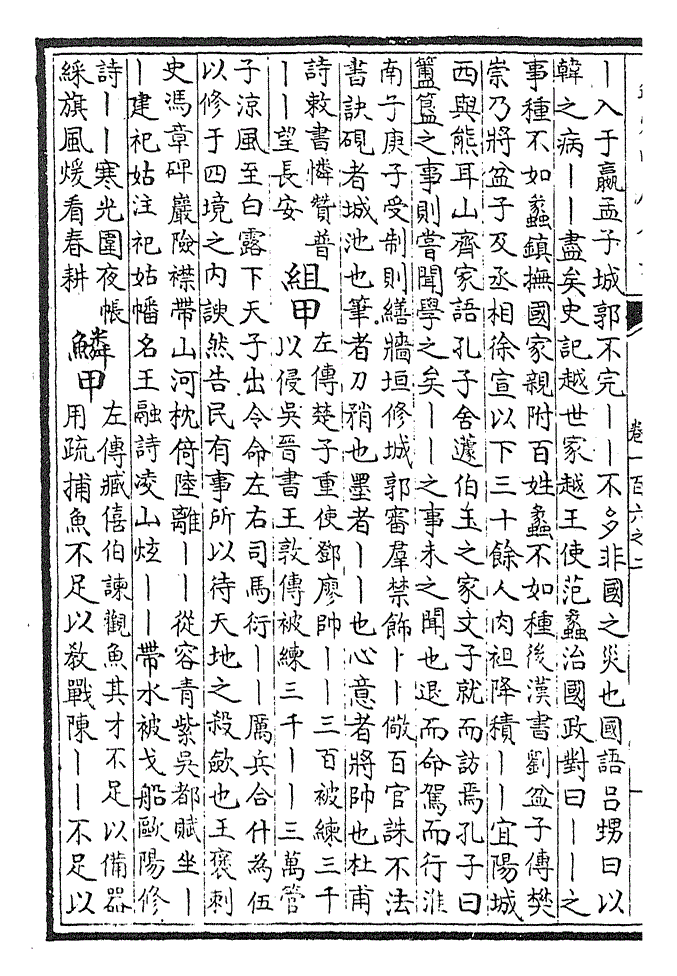 ｜入于贏孟子城郭不完｜｜不多非國之災也國語呂甥曰以
韓之病｜｜盡矣史記越世家越王使范蠡治國政對曰｜｜之
事種不如蠡鎮撫國家親附百姓蠡不如種後漢書劉盆子傳樊
崇乃將盆子及丞相徐宣以下三十餘人肉袒降積｜｜宜陽城
西與熊耳山齊家語孔子舍蘧伯玉之家文子就而訪焉孔子曰
簠簋之事則嘗聞學之矣｜｜之事未之聞也退而命駕而行淮
南子庚子受制則繕牆垣修城郭審羣禁飾｜｜儆百官誅不法
書訣硯者城池也筆者刀矟也墨者｜｜也心意者將帥也杜甫
詩敕書憐贊普
｜｜望長安
組甲
左傳楚子重使鄧廖帥｜｜三百被練三千
以侵吳晉書王敦傳被練三千｜｜三萬管
子涼風至白露下天子出令命左右司馬衍｜｜厲兵合什為伍
以修于四境之内諛然告民有事所以待天地之殺斂也王褒刺
史馮章碑巖險襟帶山河枕倚陸離｜｜從容青紫吳都賦坐｜
｜建祀姑注祀姑幡名王融詩凌山炫｜｜帶水被戈船歐陽修
詩｜｜寒光圍夜帳
綵旗風煖看春耕
鱗甲
左傳臧僖伯諫觀魚其才不足以備器
用疏捕魚不足以敎戰陳｜｜不足以
卷一百六之二